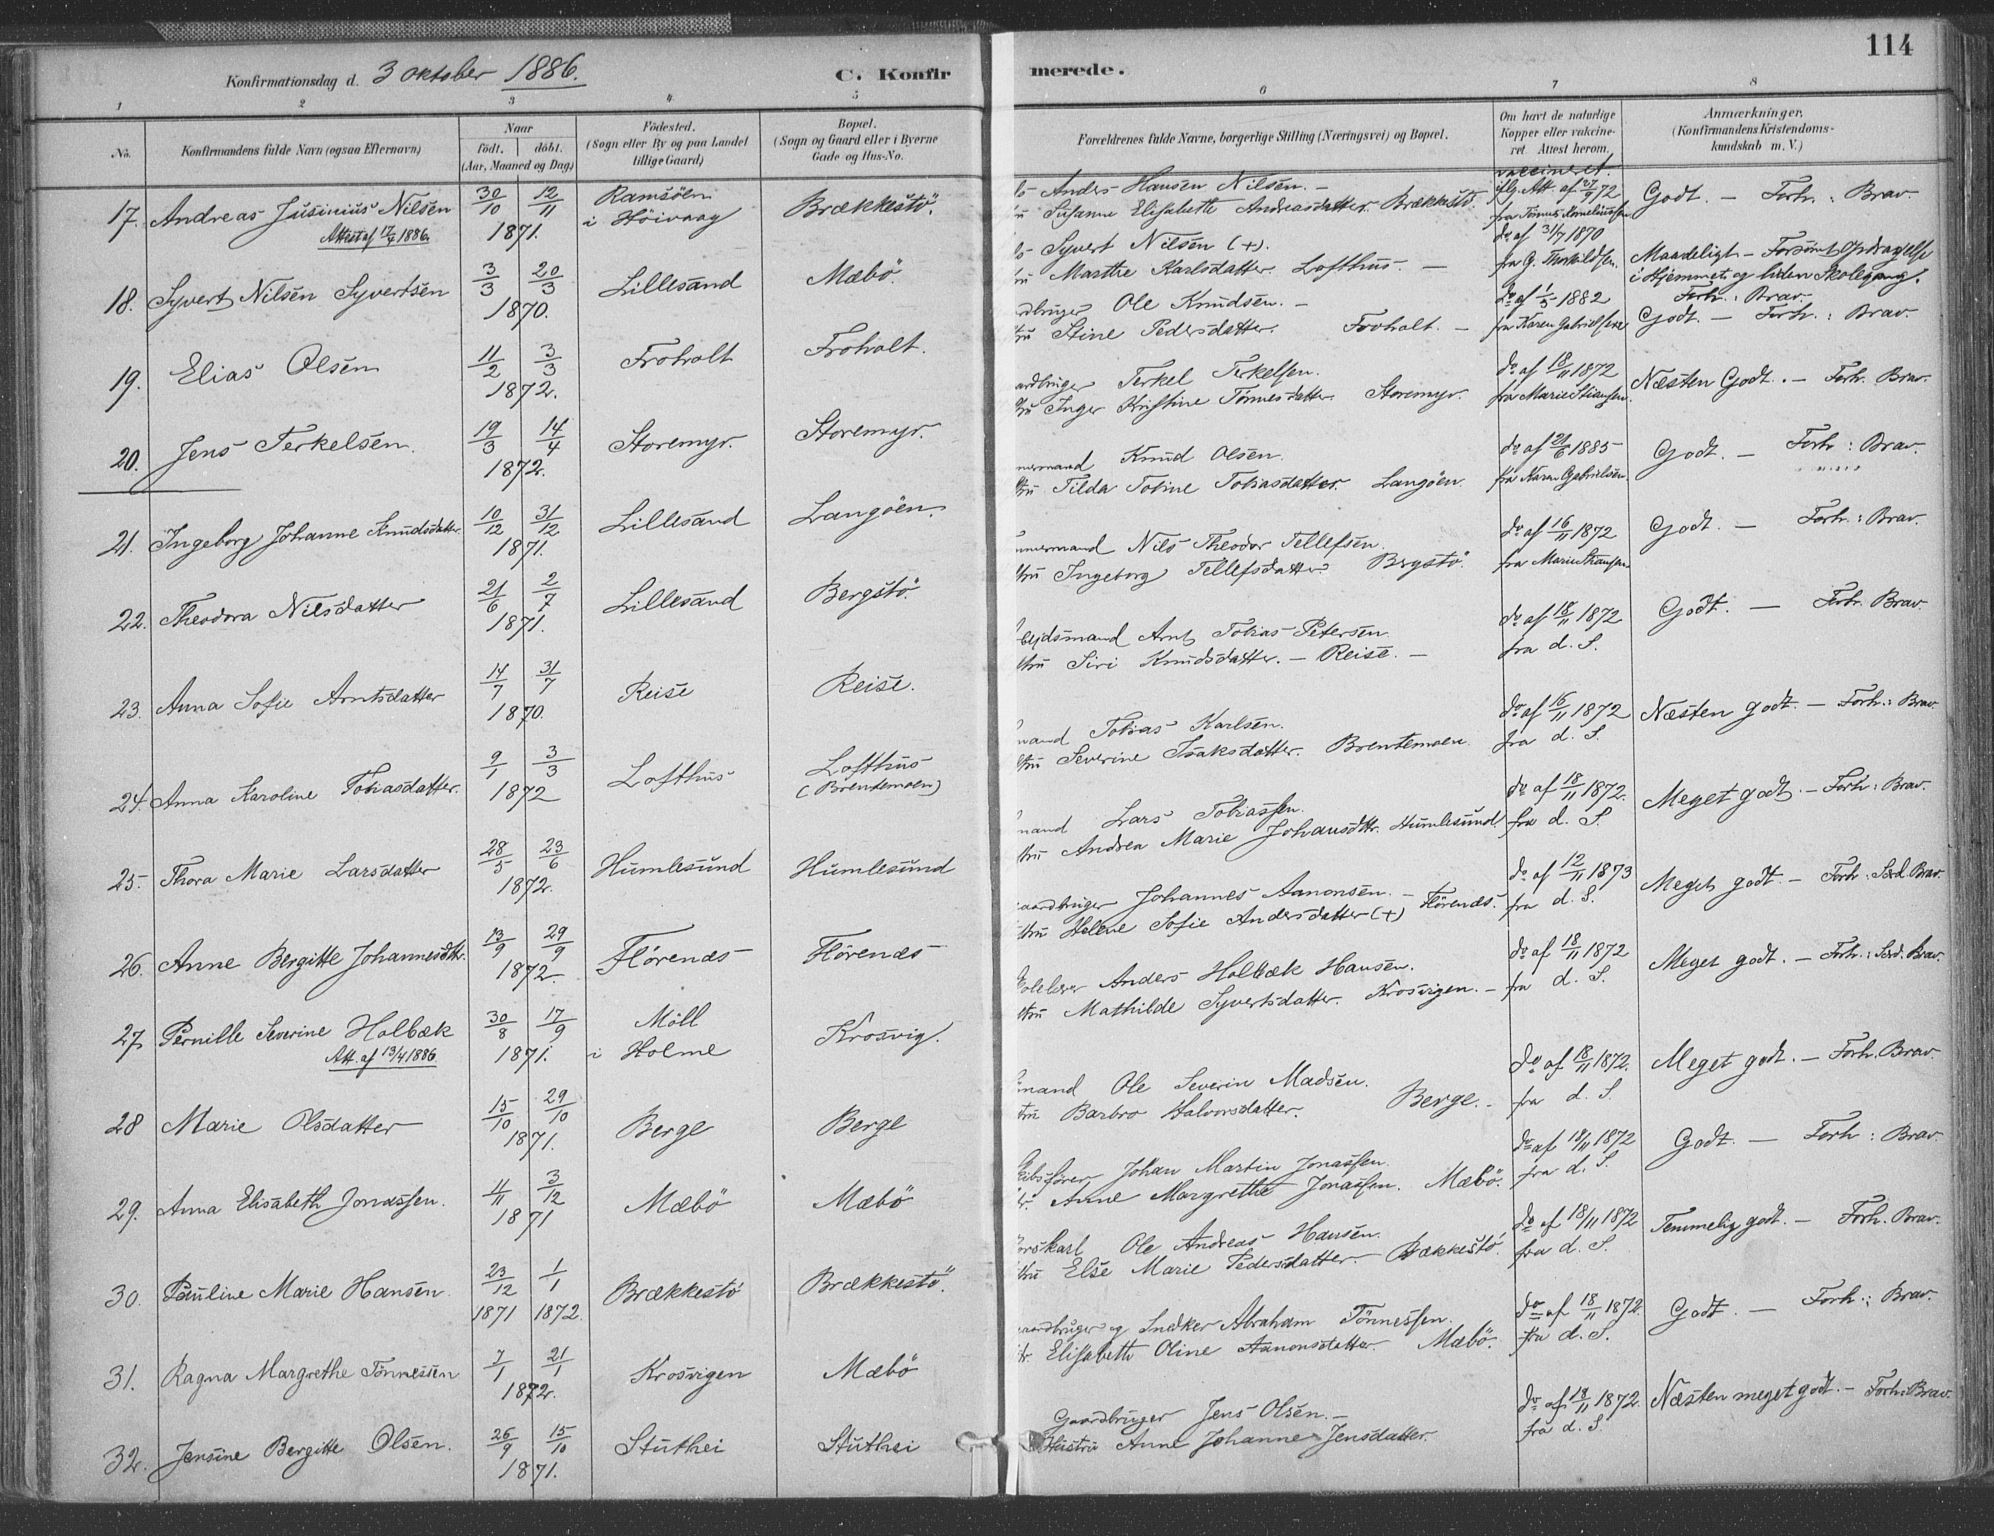 114
Konfirmationsdag d. 3 oktober 1886. C. Konfirmerede.
1 2 3 4 5 6 7 8
No. Konfirmandens fulde Navn (ogsaa Efternavn) Naar født. døbt. (Aar, Maaned og Dag) Fødested. (Sogn eller By og paa Landet tillige Gaard) Bopæl. (Sogn og Gaard eller i Byerne Gade og Hus-No. Forældrenes fulde Navne, borgerlige Stilling (Næringsvei) og Bopæl. Om havt de naturlige Kopper eller vakcineret. Attest herom. Anmærkninger. (Konfirmandens Kristendomskundskab m. V.)
17. Andreas Jusinius Nilsen 30/10 12/11 1871. Ramsöen i Höivaag Brækkestö.
Attest af 17/4 1886.
Anders Hansen Nilsen. –
Susanne Elisabeth Andreasdatter. Brækkestö.
vaccineret.
iflg. Att. af 27/9 72
fra Tönnes Korneliussen
Godt. – Forh.: Brav.
18. Syvert Nilsen Syvertsen 3/3 20/3 1870. Lillesand Mæbö.
Syvert Nilsen (+).
Marthe Karlsdatter. Lofthus. –
do af 31/7 1870
fra G. Thorkildsen.
Maadeligt – Forsömt Opdragelse
i Hjemmet og liden Skolegang.
Forh.: Brav.
19. Elias Olsen 11/2 3/3 1872. Froholt Froholt.
Ole Knudsen. –
Stine Pedersdatter. Froholt. –
do af 1/5 1882
fra Karen Gabrielsen
Godt. – Forh.: Brav.
20. Jens Terkelsen. 19/3 14/4 1872. Storemyr. Storemyr.
Terkel Terkelsen.
Inger Kristine Tönnesdatter. Storemyr.
do af 18/11 1872
fra Marie Stiansen.
Næsten Godt. – Forh. Brav.
21. Ingeborg Johanne Knudsdatter 10/12 31/12 1871. Lillesand Langöen.
Knud Olsen.
Tilda Tobine Tobiasdatter. Langöen.
do af 21/6 1885
fra Karen Gabrielsen.
Godt. – Forh: Brav.
22. Theodora Nilsdatter 21/6 2/7 1871. Lillesand Bergstö.
Nils Theodor Tellefsen.
Ingeborg Tellefsdatter. Bergstö.
do af 16/11 1872
fra Marie Stiansen
Godt. – Forh.: Brav.
23. Anna Sofie Arntsdatter 14/7 31/7 1870. Reise Reise.
Arnt Tobias Petersen
Siri Knudsdatter. – Reise. –
do af 18/11 1872
fra d. S.
Godt. – Forh. Brav.
24. Anna Karoline Tobiasdatter. 9/1 3/3 1872 Lofthus Lofthus
(Brentemoen)
Tobias Karlsen.
Severine Isaksdatter. Brentemoen.
do af 16/11 1872
fra d. S.
Næsten godt. – Forh.: Brav
25. Thora Marie Larsdatter 28/5 23/6 1872. Humlesund Humlesund
Lars Tobiassen.
Andrea Marie Johansdttr. Humlesund.
do af 18/11 1872.
fra d. S.
Meget godt. – Forh: Brav.
26. Anne Bergitte Johannesdttr. 13/9 29/9 1872. Flörenæs Flörenæs
Johannes Aanonsen. –
Helene Sofie Andersdatter (+) Flörenæs.
do af 12/11 1873
fra d. S.
Meget godt. – Forh: Sæd. Brav.
27. Pernille Severine Holbæk 30/8 17/9 1871. Möll i Holme Krosvig.
Att. af 13/4 1886
Anders Holbæk Hansen.
Mathilde Syvertsdatter. Krosvigen. –
do af 18/11 1872
fra d. S.
Meget godt. – Forh.: Sæd. Brav.
28 Marie Olsdatter 15/10 29/10 1871. Berge Berge
Ole Severin Madsen.
Barbro Halvorsdatter. Berge. –
do af 18/11 1872.
fra d. S.
Meget godt. – Forh. Brav.
29. Anna Elisabeth Jonassen. 4/11 3/12 1871 Mæbö Mæbö
Johan Martin Jonassen.
Anne Margrethe Jonassen. Mæbö.
do af 18/11 1872
fra d. S.
Godt. – Forh: Brav.
30. Pauline Marie Hansen. 23/12 1871 1/1 1872. Brækkestö Brækkestö.
Ole Andreas Hansen.
Else Marie Pedersdatter. Brækkestö.
do af 18/11 1872
fra d. S.
Temmelig godt. – Forh. Brav.
31. Ragna Margrethe Tönnessen 7/1 21/1 1872. Krosvigen Mæbö
og Snedker Abraham Tönnessen.
Elisabeth Oline Aanonsdatter. Mæbö.
do af 18/11 1872
fra d. S.
Godt. – Forh.: Brav.
32. Jensine Bergitte Olsen. 26/9 15/10 1871. Stuthei Stuthei
Gaardbruger Jens Olsen. –
Hustru Anne Johanne Jensdatter.
do af 18/11 1872
fra d. S.
Næsten meget godt. – Forh: Brav.